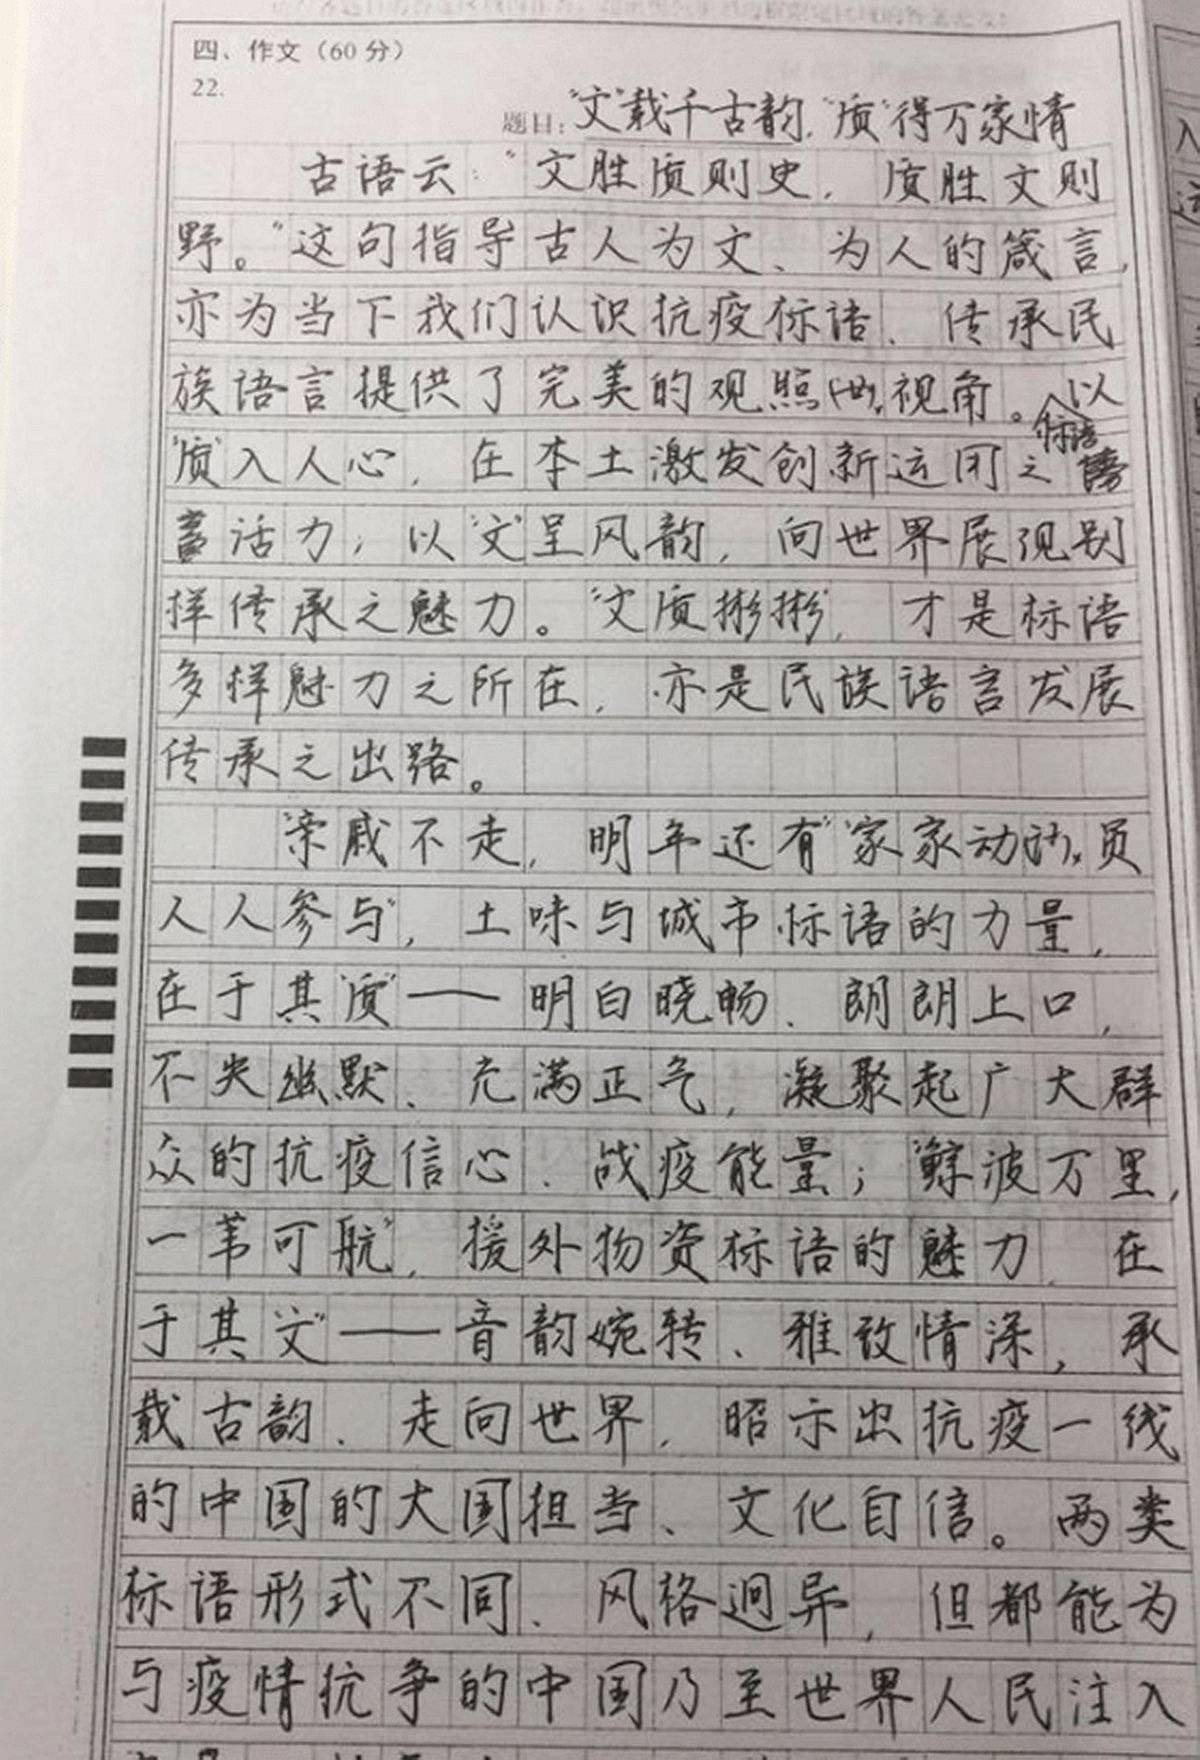 四、作文（60分）
22.
题目："文"载千古韵，"质"得万家情
古语云："文胜质则史，质胜文则
野。"这句指导古人为文、为人的箴言，
亦为当下我们认识抗疫标语、传承民
族语言提供了完美的观照视角。以
"质"入人心，在本土激发创新运团之标语
活力；以"文"呈风韵，向世界展现别
样传承之魅力。"文质彬彬"，才是标语
多样魅力之所在，亦是民族语言发展
传承之出路。
"亲戚不走，明年还有""家家动员
人人参与"，土味与城市标语的力量，
在于其"质"——明白晓畅、朗朗上口，
不失幽默、充满正气，凝聚起广大群
众的抗疫信心、战疫能量；"鲸波万里，
一苇可航"，援外物资标语的魅力，在
于其"文"——音韵婉转、雅致情深，承
载古韵、走向世界，昭示出抗疫一线
的中国的大国担当、文化自信。两类
标语形式不同、风格迥异，但都能为
与疫情抗争的中国乃至世界人民注入